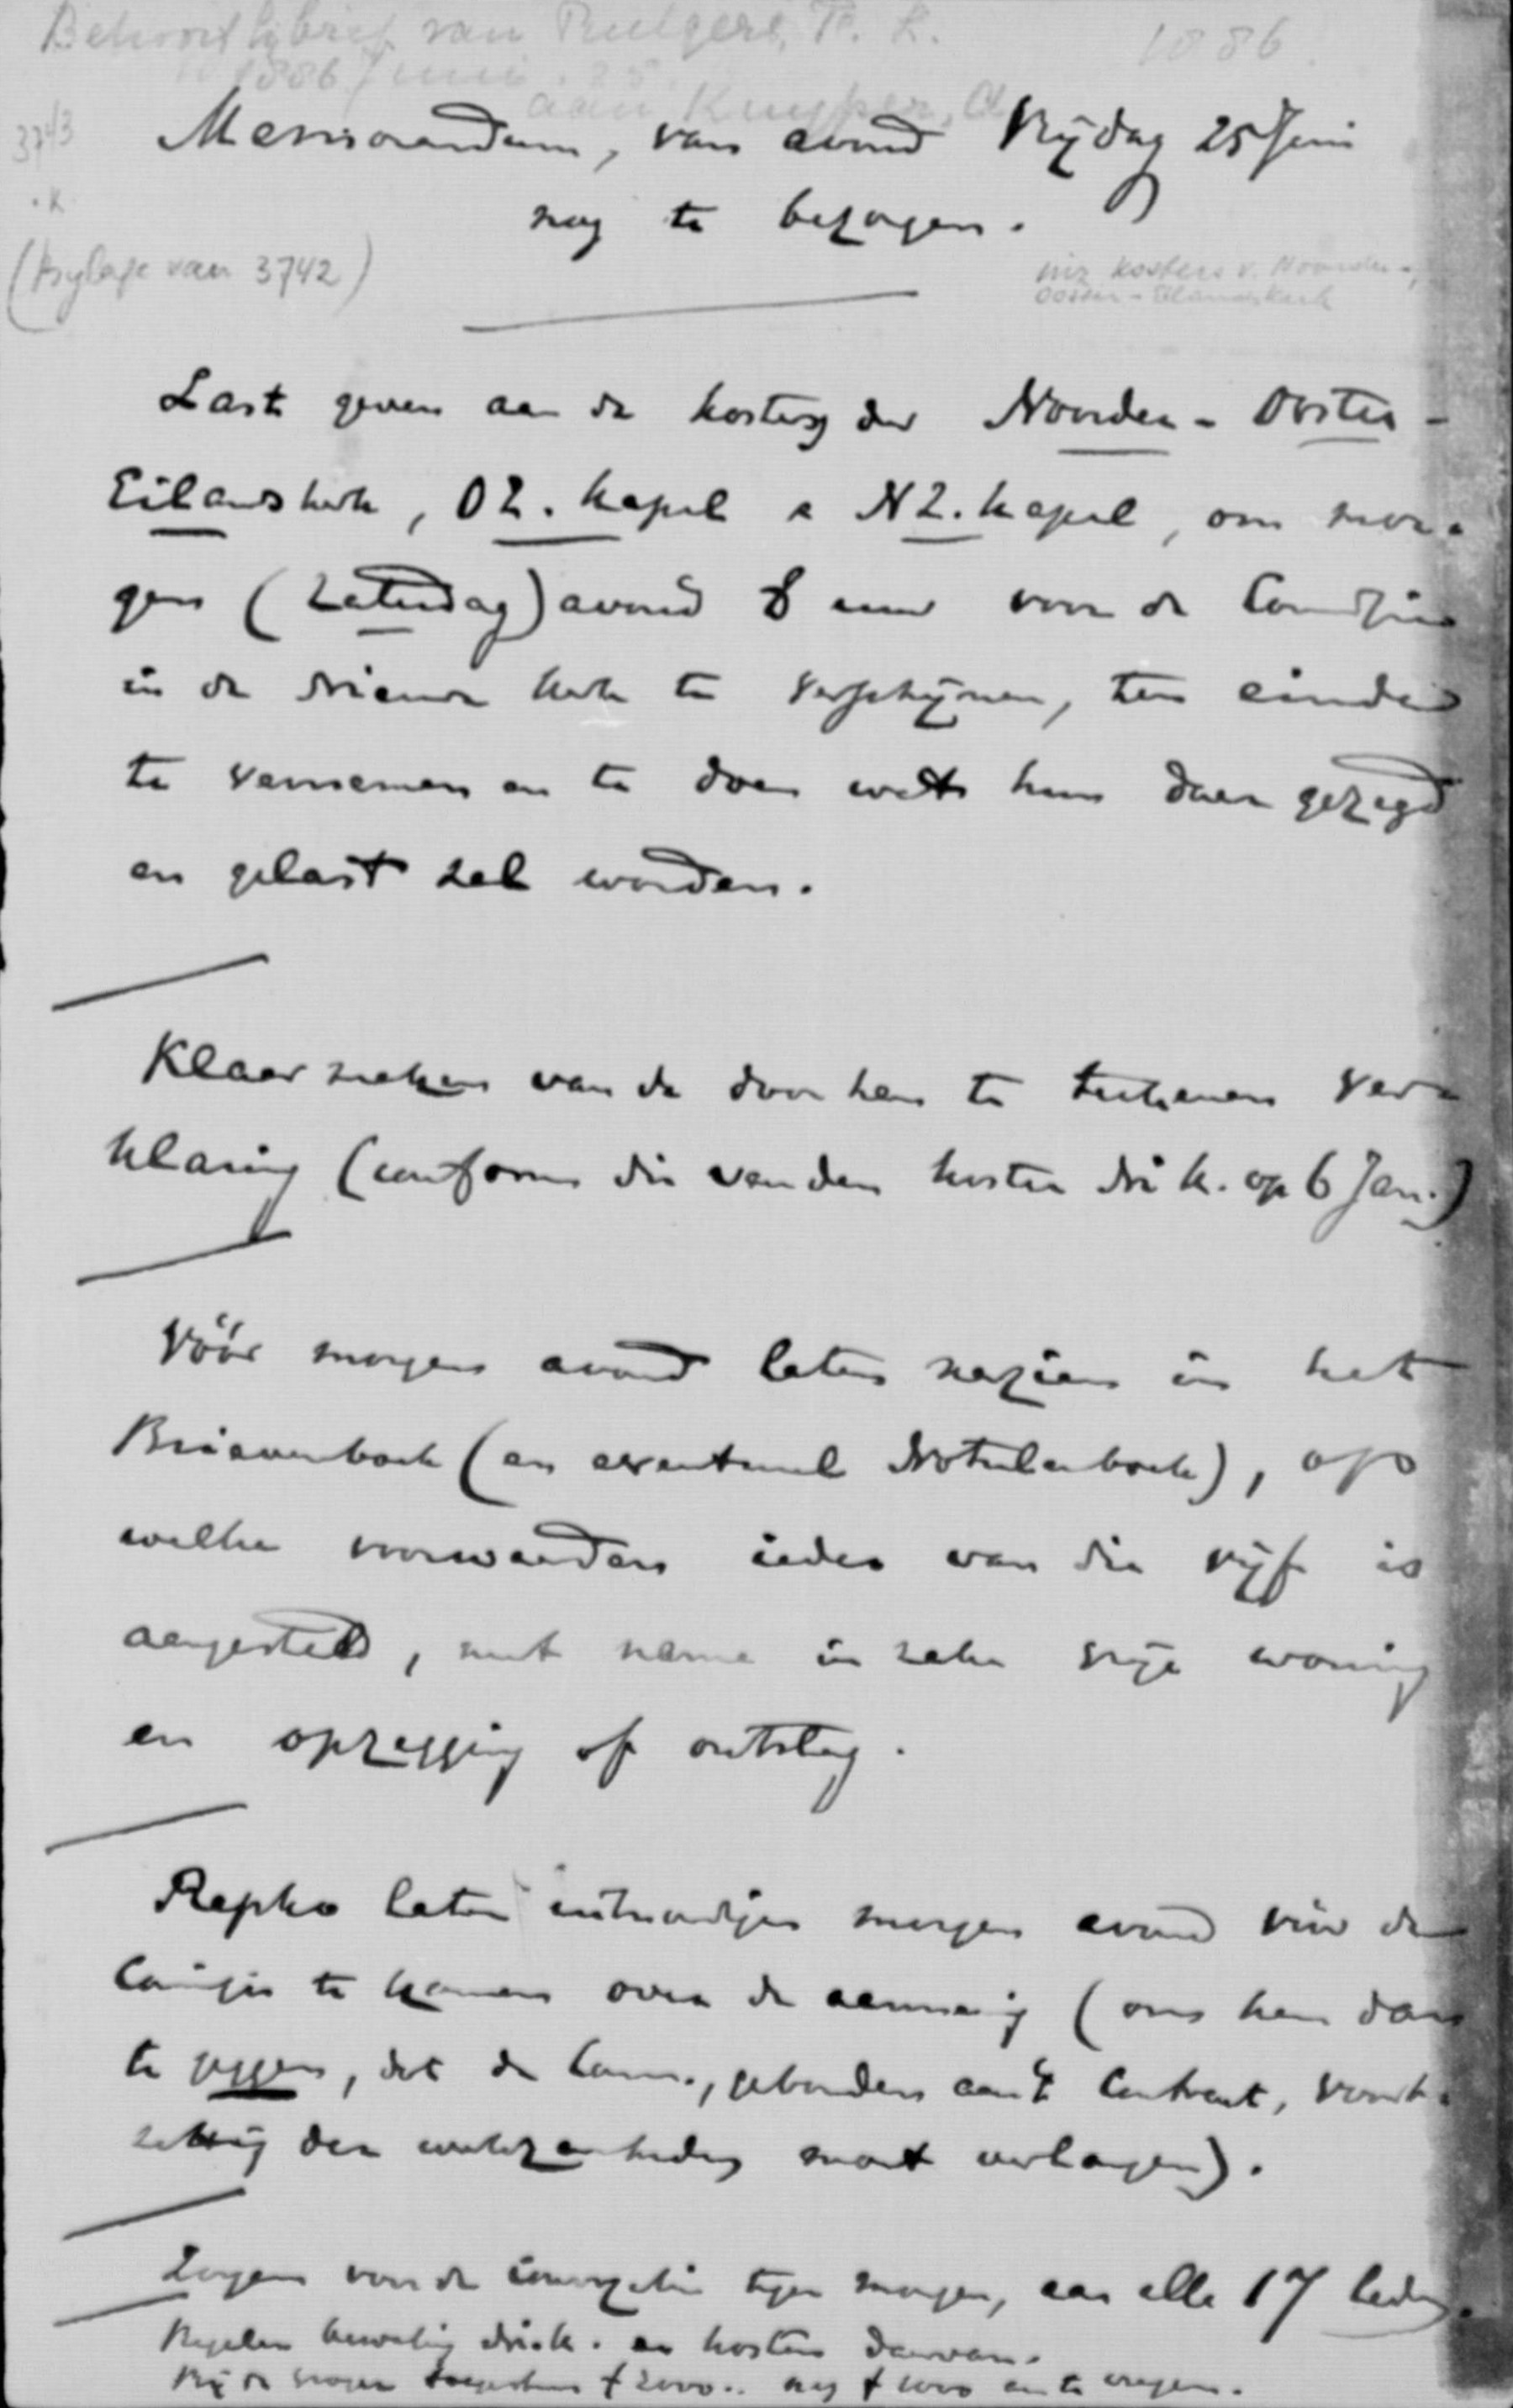 Behoort bij brief van Rutgers, F. L. 1886
1886 Juni 25
aan Kuyper, A
3743
.K
Memorandum, van avond Vrijdag 25 Juni
nog te bezorgen.
(bylage van 3742)
kosters v. Noorder-,
Ooster-Eilandskerk
Last geven aan de kosters der Noorder- Ooster-
Eilandskerk, OZ. kapel & NZ. kapel, om mor-
gen (Zaturdag) avond 8 uur voor de Commissie
in de Nieuwe Kerk te verschijnen, ten einde
te vernemen en te doen wat hun daar gezegd
en gelast zal worden.
Klaar maken van de door hen te teekenen ver-
klaring (conform die van den koster N. K. op 6 Jan.)
Vóór morgen avond laten nazien in het
Brievenboek (en eventueel Notulenboek), op
welke voorwaarden ieder van die vijf is
aangesteld, met name in zake vrije woning
en opzegging of ontslag.
Repko laten uitnoodigen morgen avond vóór de
Comissie te komen over de aanneming (om hem dan
te zeggen, dat de Comm., gebonden aan 't Contract, voort-
zetting der werkzaamheden moet verlangen).
Zorgen voor de convocatie tegen morgen, aan alle 17 leden.
Regelen bewaking N. K. en kosten daarvan.
Bij de vroeger toegestane f 2000.. nog f 1000 aan te vragen.